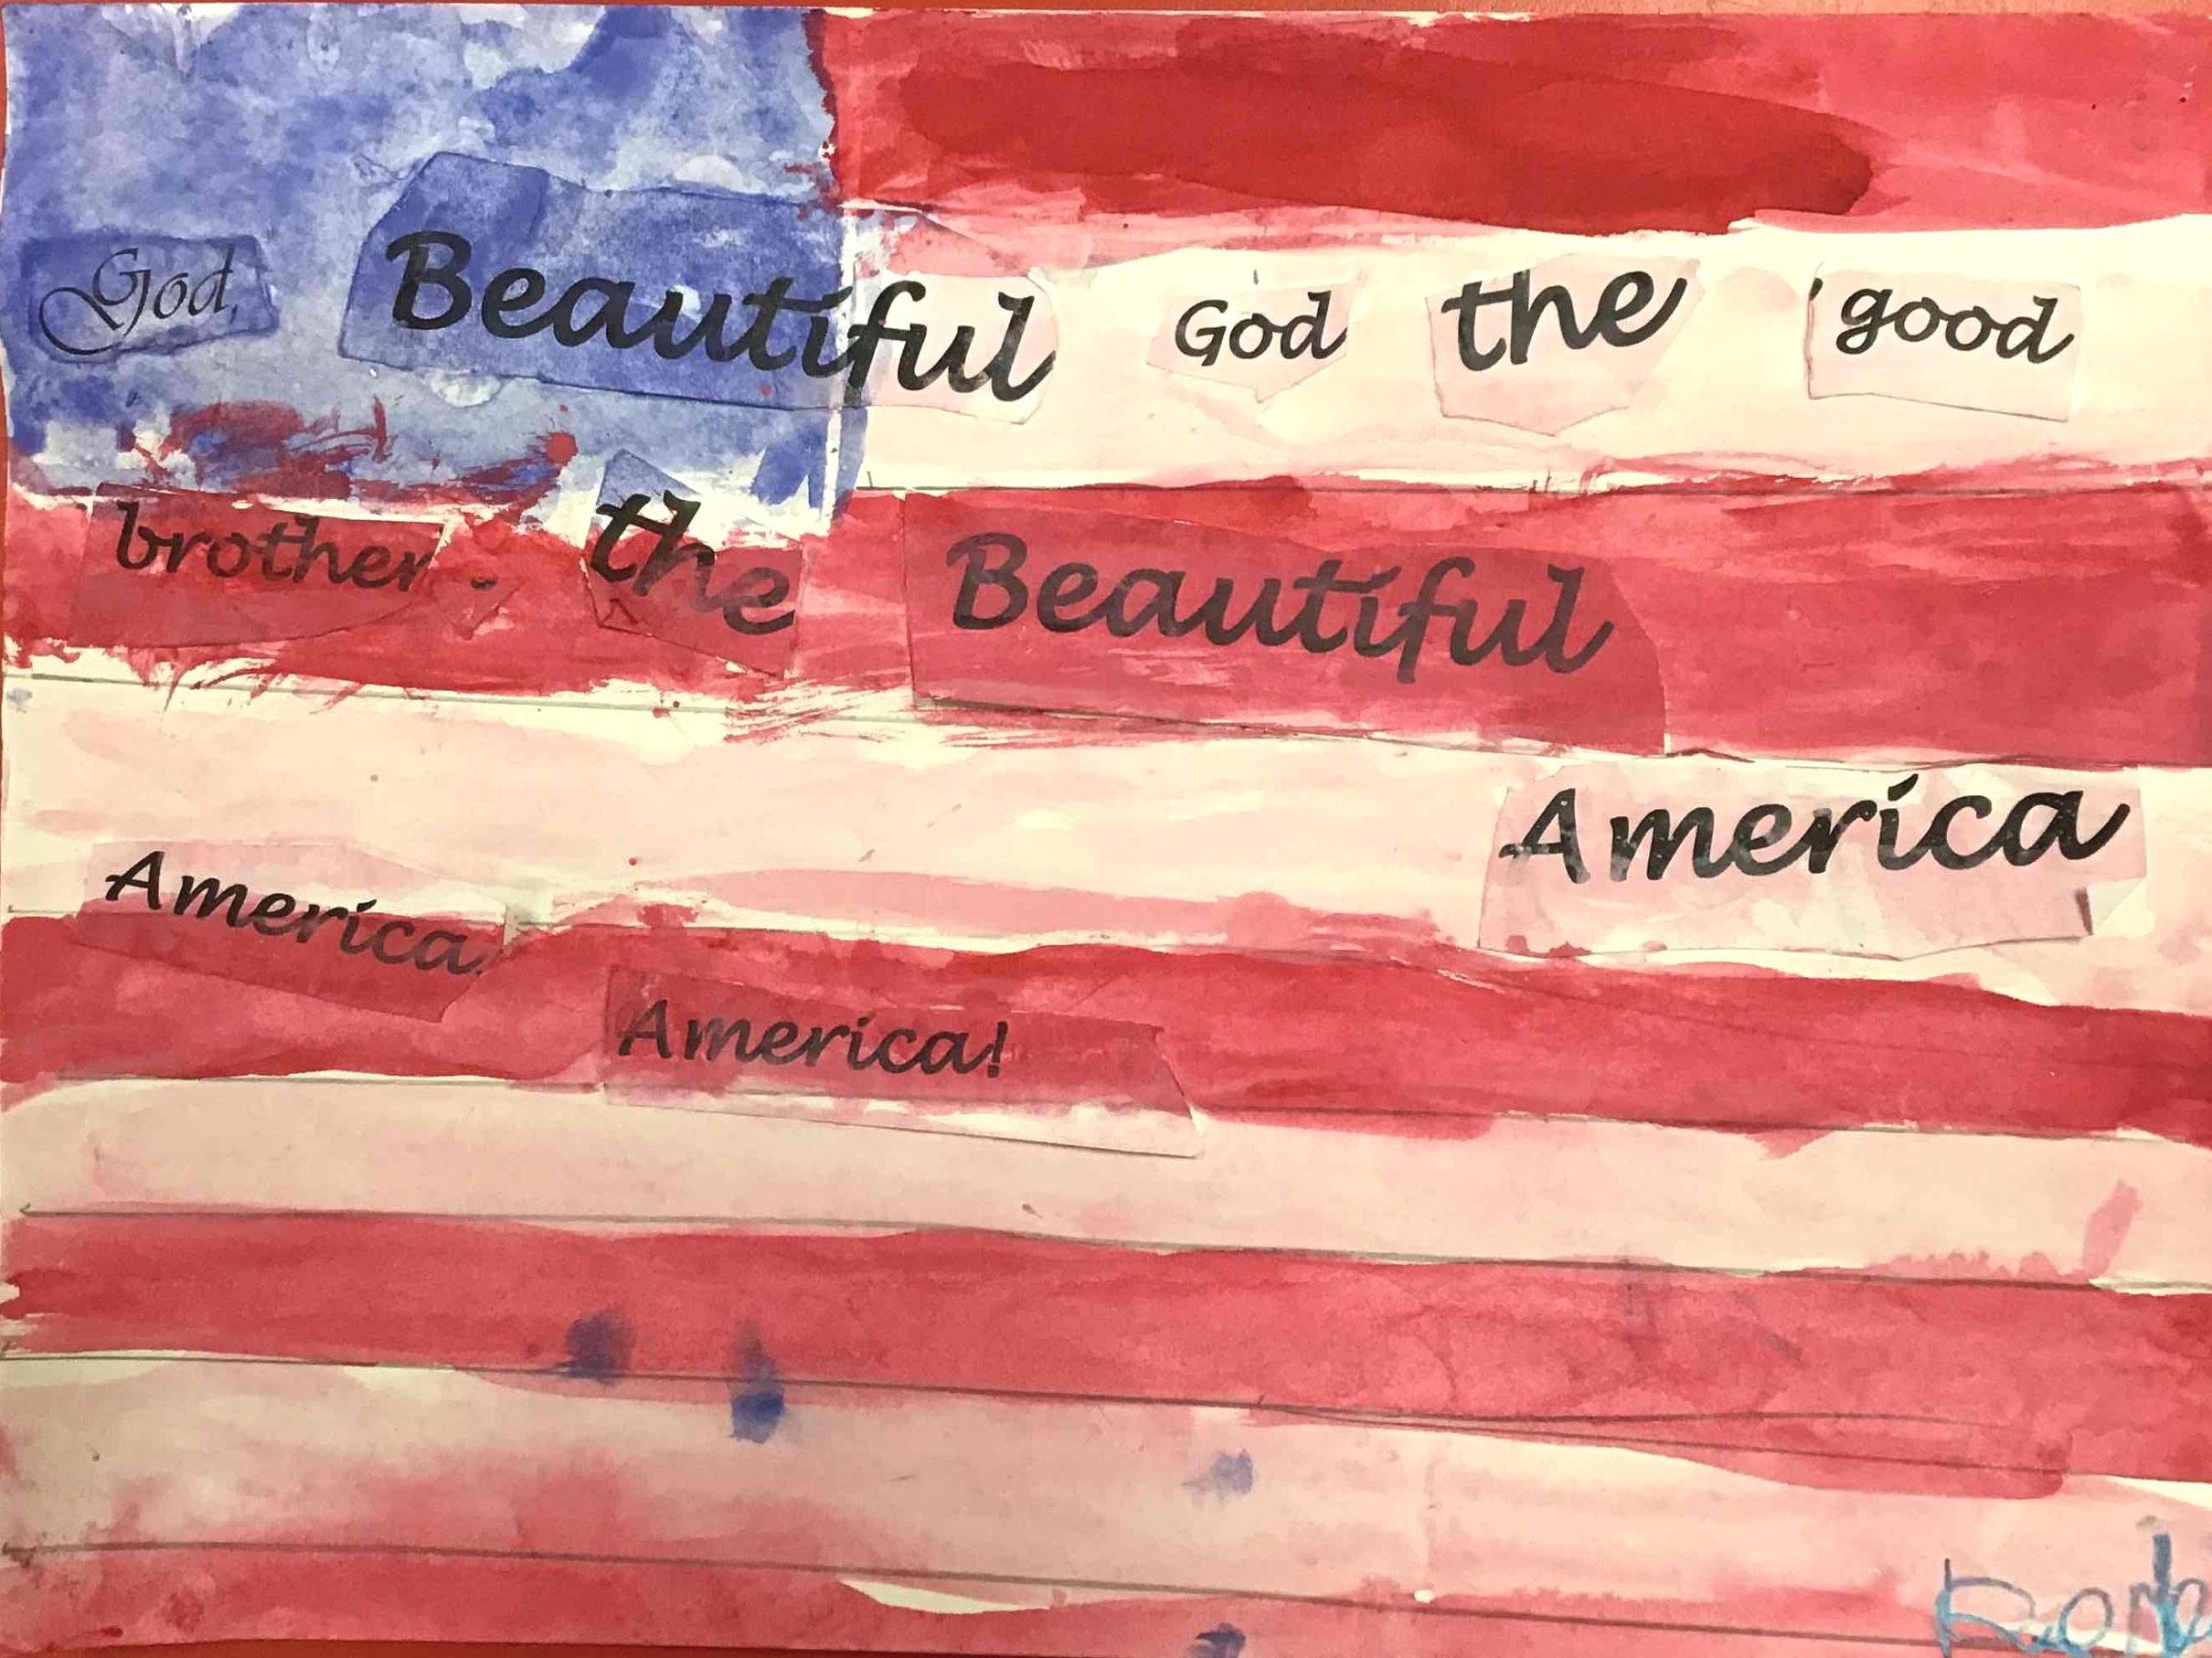 God, Beautiful God the good
brother. the Beautiful
America
America
America!